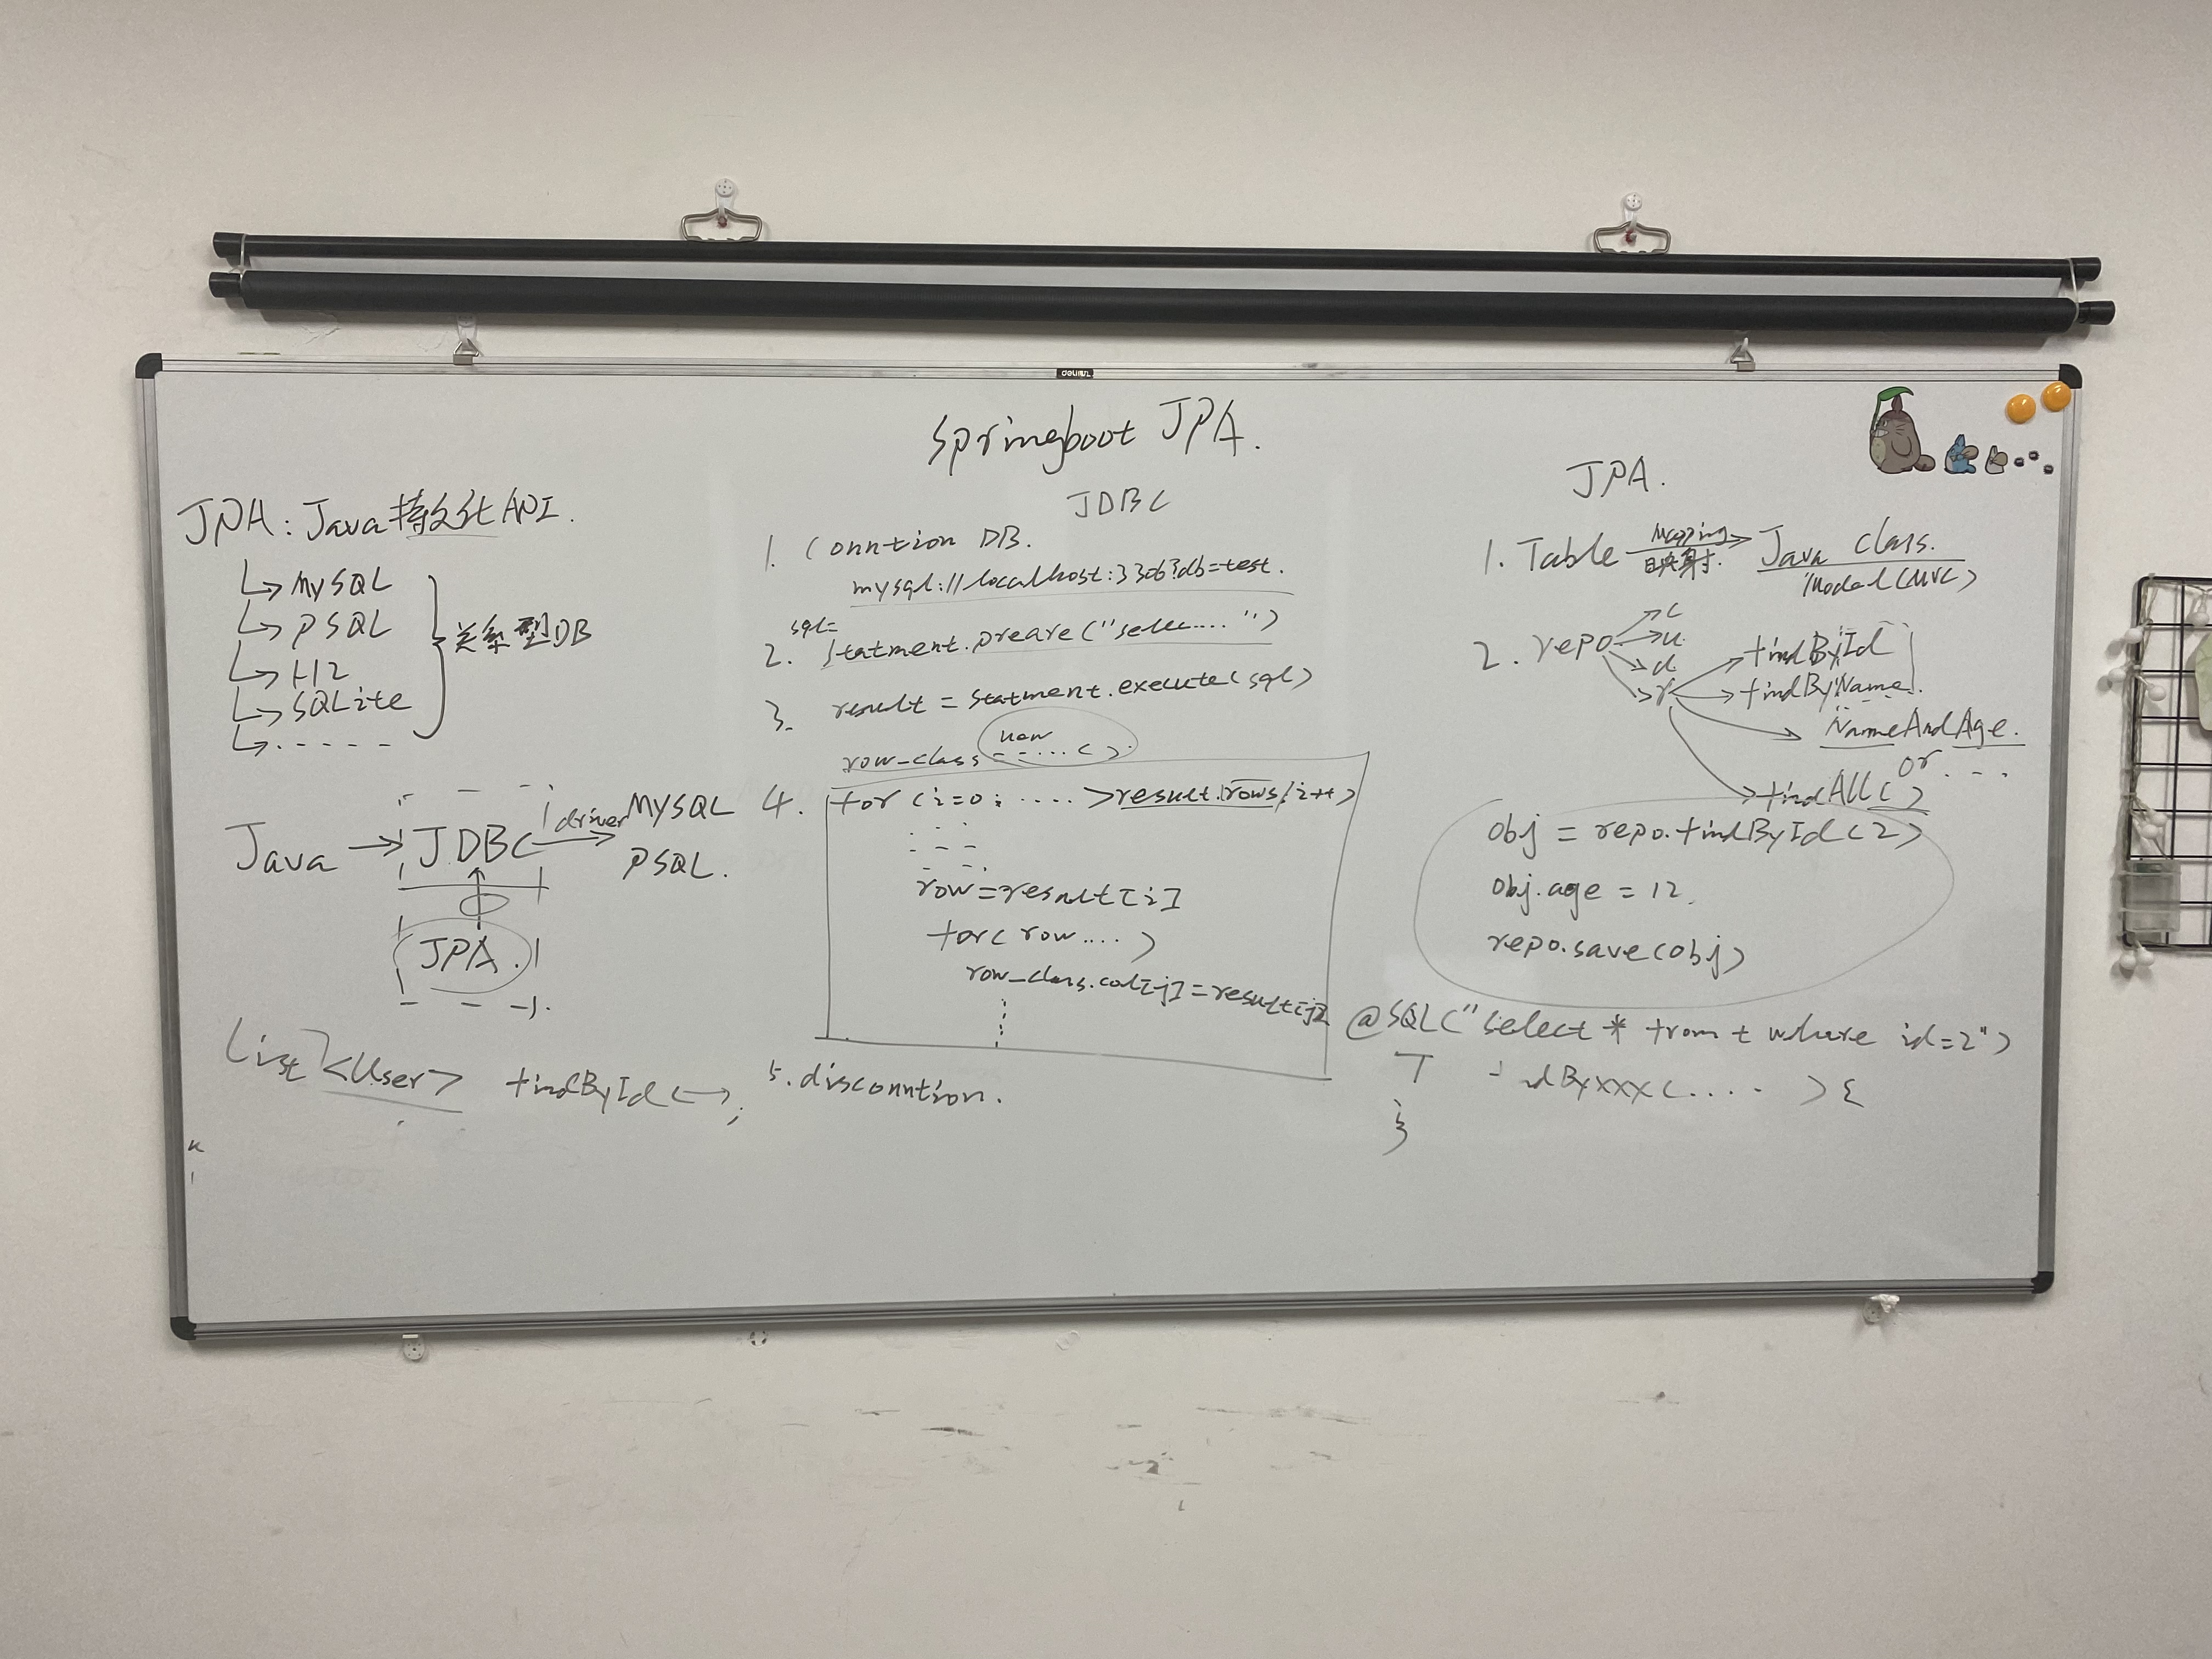 Springboot JPA.
JPA: Java持久化API.
↳MySQL
↳PSQL
↳H2
↳SQLite
↳.-----
关系型DB
Java → JDBC driver→ MYSQL
PSQL.
JPA.
List<User> findById();
JDBC
1. Conntion DB.
mysql://localhost:3306?db=test.
sql=
2. Statment.preare("selec....")
3. result = statment.execute(sql)
row_class new ----...()
4. for (i=0; .... >result.rows;i++)
row=result[i]
for( row.... )
row_class.col[j]=result[j]
5.disconntion.
JPA.
1. Table Mapping→ 映射. Java class.
Model(MVC)
2. repo →c
→u
→d
→r
→findById
→findByName.
→NameAndAge.
or ...
→findAll()
obj = repo.findById(2)
obj.age = 12.
repo.save(obj)
@SQL("select * from t where id=2")
T ndByxxx(.... ){
}